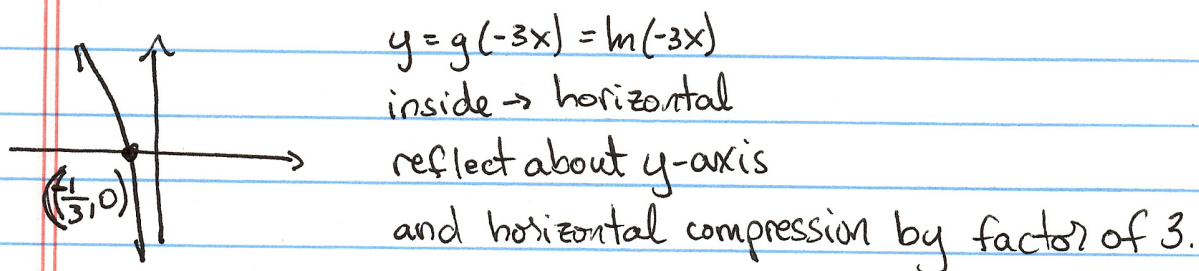 y = g(-3x) = ln(-3x)
inside → horizontal
reflect about y-axis
(-1/3, 0)
and horizontal compression by factor of 3.